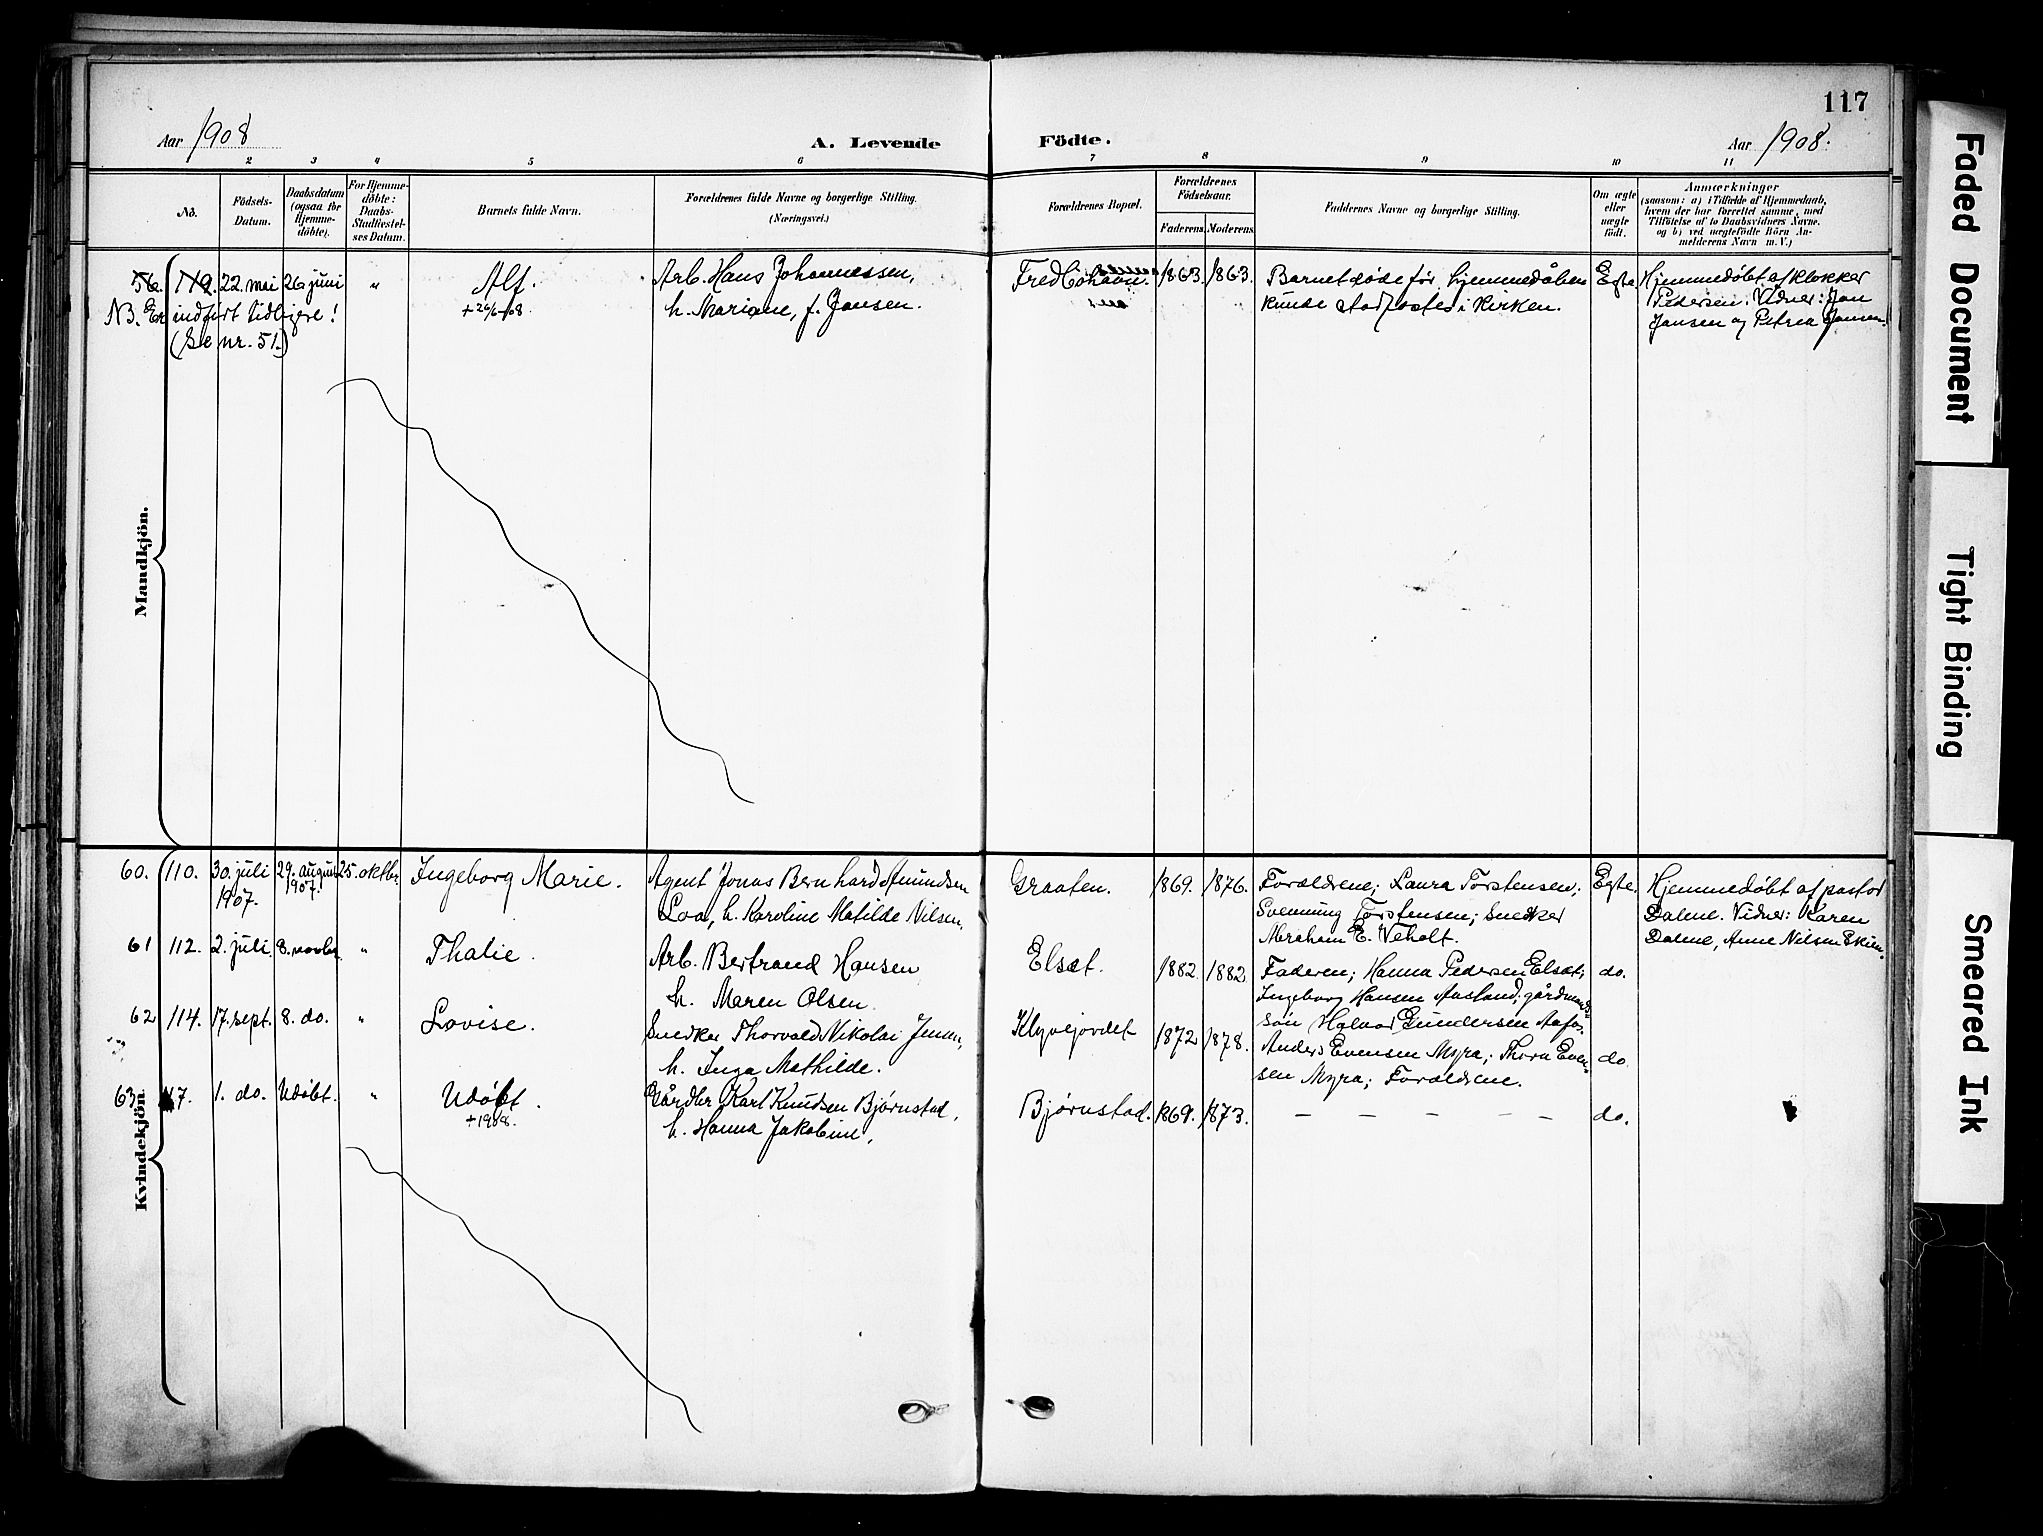 117
Aar 1908
A. Levende Födte.
Aar 1908.
1 2 3 4 5 6 7 8 9 10 11
No.
Födsels-Datum.
Daabsdatum (ogsaa for Hjemmedöbte).
For Hjemmedöbte: Daabs-Stadfæstelses Datum.
Barnets fulde Navn.
Forældrenes fulde Navne og borgerlige Stilling. (Næringsvei.)
Forældrenes Bopæl.
Forældrenes Födselsaar.
Faderens Moderens
Faddernes Navne og borgerlige Stilling.
Om ægte eller uægte födt.
Anmærkninger
(saasom: a) i Tilfælde af Hjemmedaab, hvem der har forrettet samme, med Tilföielse af to Daabsvidners Navne. og b) ved uægtefödte Börn Anmelderens Navn m. V.)
Mandkjön.
56. 22. mai 26 juni " Alf. Arb. Hans Johannessen, 1863. 1863. Barnet døde før hjemmedåben Egte. Hjemmedøbt af klokker
NB. Er indført tidligere! +26/6-08 h. Mariane, f. Jansen. kunde stadfæstes i kirken. Pedersen. Vidner: Jan
(Se nr. 51.) Jansen og Petrea Jansen.
Kvindekjön.
60. 110. 30. juli 29. august 25. oktbr. Ingeborg Marie. Agent Jonas Bernhard Amundsen Graaten. 1869. 1876. Forældrene; Laura Torstensen; Egte. Hjemmedøbt af pastor
1907. 1907. Loa, h. Karoline Matilde Nilsen, Svenning Torstensen; Snedker Dalme. Vidner: Karen
Abraham E. Veholt. Dalme, Anne Nilsen Skien.
61 112. 2. juli 8. novbr. " Thalie. Arb. Bertrand Hansen Elset. 1882 1882 Faderen; Hanna Pedersen Elset; do.
h. Maren Olsen. Ingeborg Hansen Aasland; gårdmands-
søn Halvor Gundersen
62 114. 17. sept. 8. do. " Lovise. Snedker Thorvald Nikolai Jensen, Klyvejordet 1872 1878. Anders Evensen Myra; Thora Even- do.
h. Inga Mathilde. sen Myra; Forældrene.
63 117. 1. do. Udøbt. " Udøbt. Gårdbr Karl Knudsen Bjørnstad, Bjørnstad. 1869. 1873. — — — — — do.
+1908. h. Hanna Jakobine,
Faded Document
Tight Binding
Smeared Ink